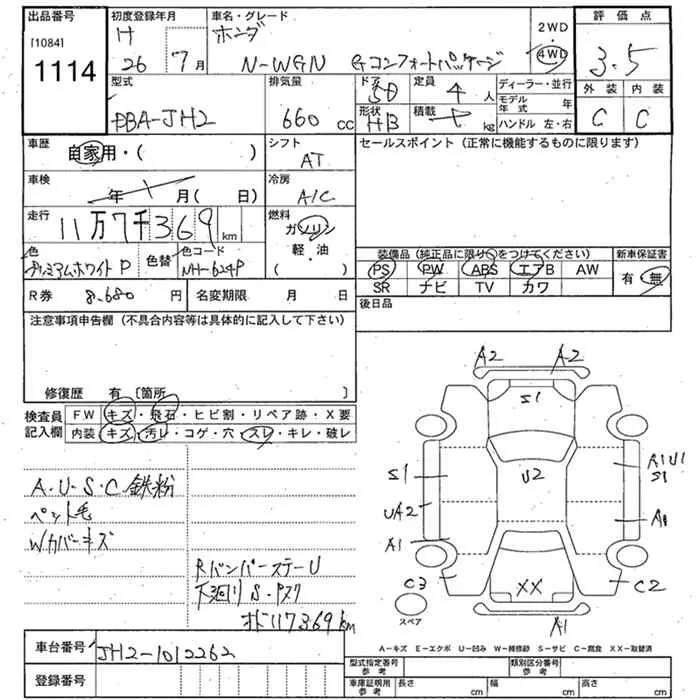 出品番号
[1084]
1114
初度登録年月
H
26 7月
車名・グレード
ホンダ
N-WGN Gコンフォートパッケージ
2WD
4WD
評価点
3.5
外装 内装
C C
型式
DBA-JH2
排気量
660 cc
ドア 5D
形状 HB
定員 4人
積載 kg
ディーラー・並行
モデル年式 年
ハンドル 左・右
車歴
自家用・( )
シフト
AT
セールスポイント(正常に機能するものに限ります)
車検
年 月( 日)
冷房
A/C
走行
11万7千369km
燃料
ガソリン
軽・油
( )
色
プレミアムホワイトP
色替
色コード
NH-624P
装備品(純正品に限り○をつけてください)
新車保証書
PS PW ABS エアB AW
有・無
SR ナビ TV カワ
R券 8,680円
名変期限 月 日
後日品
注意事項申告欄(不具合内容等は具体的に記入して下さい)
修復歴 有[箇所 ]
検査員
記入欄
FW キズ・飛石・ヒビ割・リペア跡・X要
内装 キズ・汚レ・コゲ・穴・スレ・キレ・破レ
A・U・S・C 鉄粉
ペット毛
Wカバーキズ
RバンパーステーU
下廻りS・Pスク
オド117369km
A2 A2
S1
S1
U2
A1U1
S1
UA2
A1
A1
C3
XX
C2
A1
スペア
A-キズ E-エクボ U-凹み W-補修跡 S-サビ C-腐食 XX-取替済
車台番号
JH2-1012262
登録番号
型式指定番号
参考
類別区分番号
参考
車庫証明用
参考
長さ cm
幅 cm
高さ cm